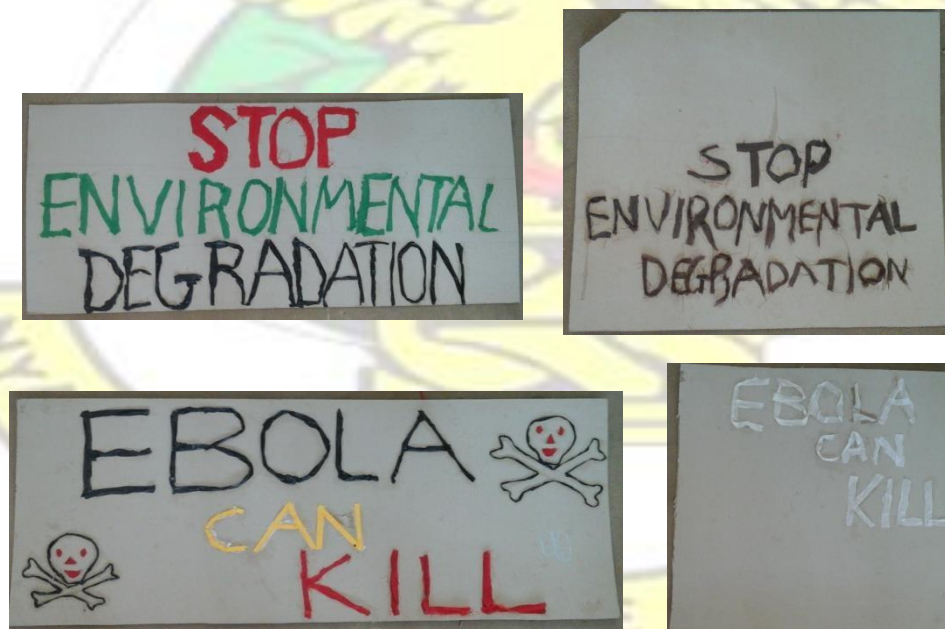 STOP
ENVIRONMENTAL
DEGRADATION
STOP
ENVIRONMENTAL
DEGRADATION
EBOLA
CAN
KILL
EBOLA
CAN
KILL